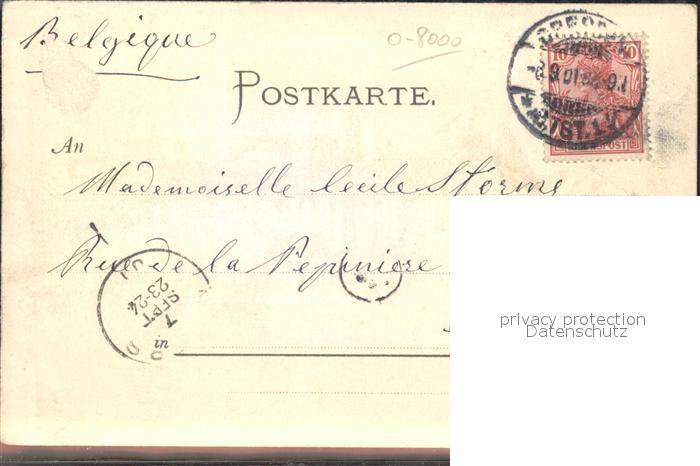 Belgique
0-8000
POSTKARTE.
An
Mademoiselle Cecile Storms
Rue de la Pepiniere
in
7
SEPT
23-24
10 10
privacy protection
Deutschland